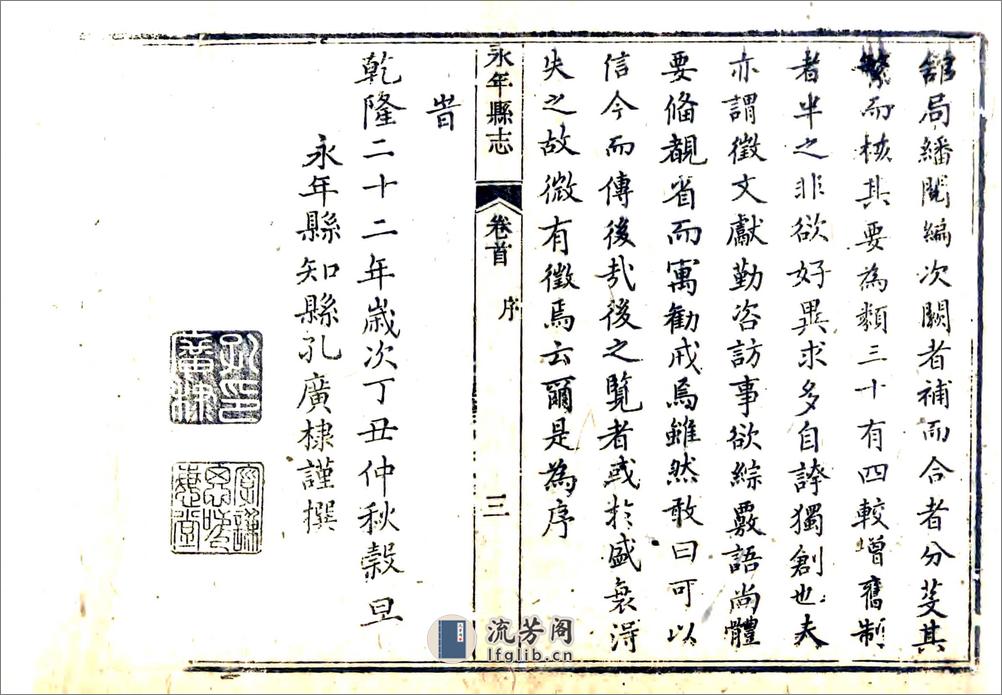 舘局繙閱編次闕者補而合者分芟其
繁而核其要為類三十有四較增舊制
者半之非欲好異求多自誇獨創也夫
亦謂徵文獻勤咨訪事欲綜覈語尚體
要俻觀省而寓勸戒焉雖然敢曰可以
信今而傳後㢤後之覽者或於盛衰淂
失之故微有徵焉云爾是為序
永年縣志
卷首
序
三
旹
乾隆二十二年嵗次丁丑仲秋穀旦
永年縣知縣孔廣棣謹撰
孔印
廣棣
流芳阁
lfglib.cn